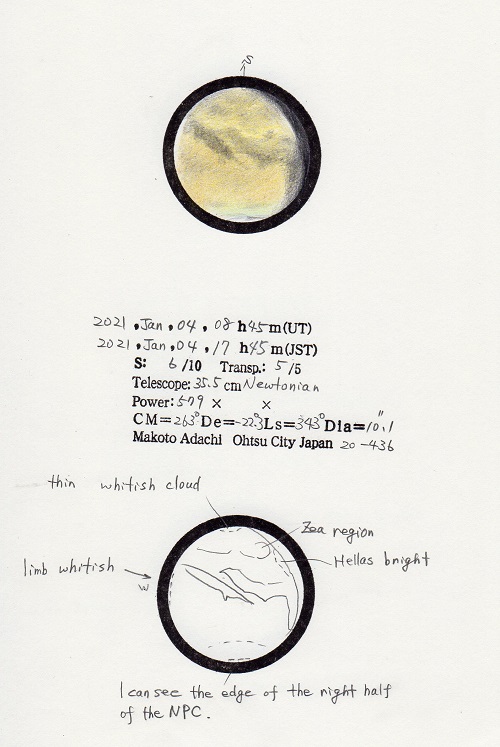 S
2021 , Jan , 04 , 08 h 45 m (UT)
2021 , Jan , 04 , 17 h 45 m (JST)
S: 6 /10 Transp.: 5 /5
Telescope: 35.5 cm Newtonian
Power: 579 × ×
CM = 263° De = -22.3 Ls = 343° Dia = 10.1"
Makoto Adachi Ohtsu City Japan 20 - 436
thin whitish cloud
Zea region
Hellas bright
limb whitish
W
I can see the edge of the right half
of the NPC.